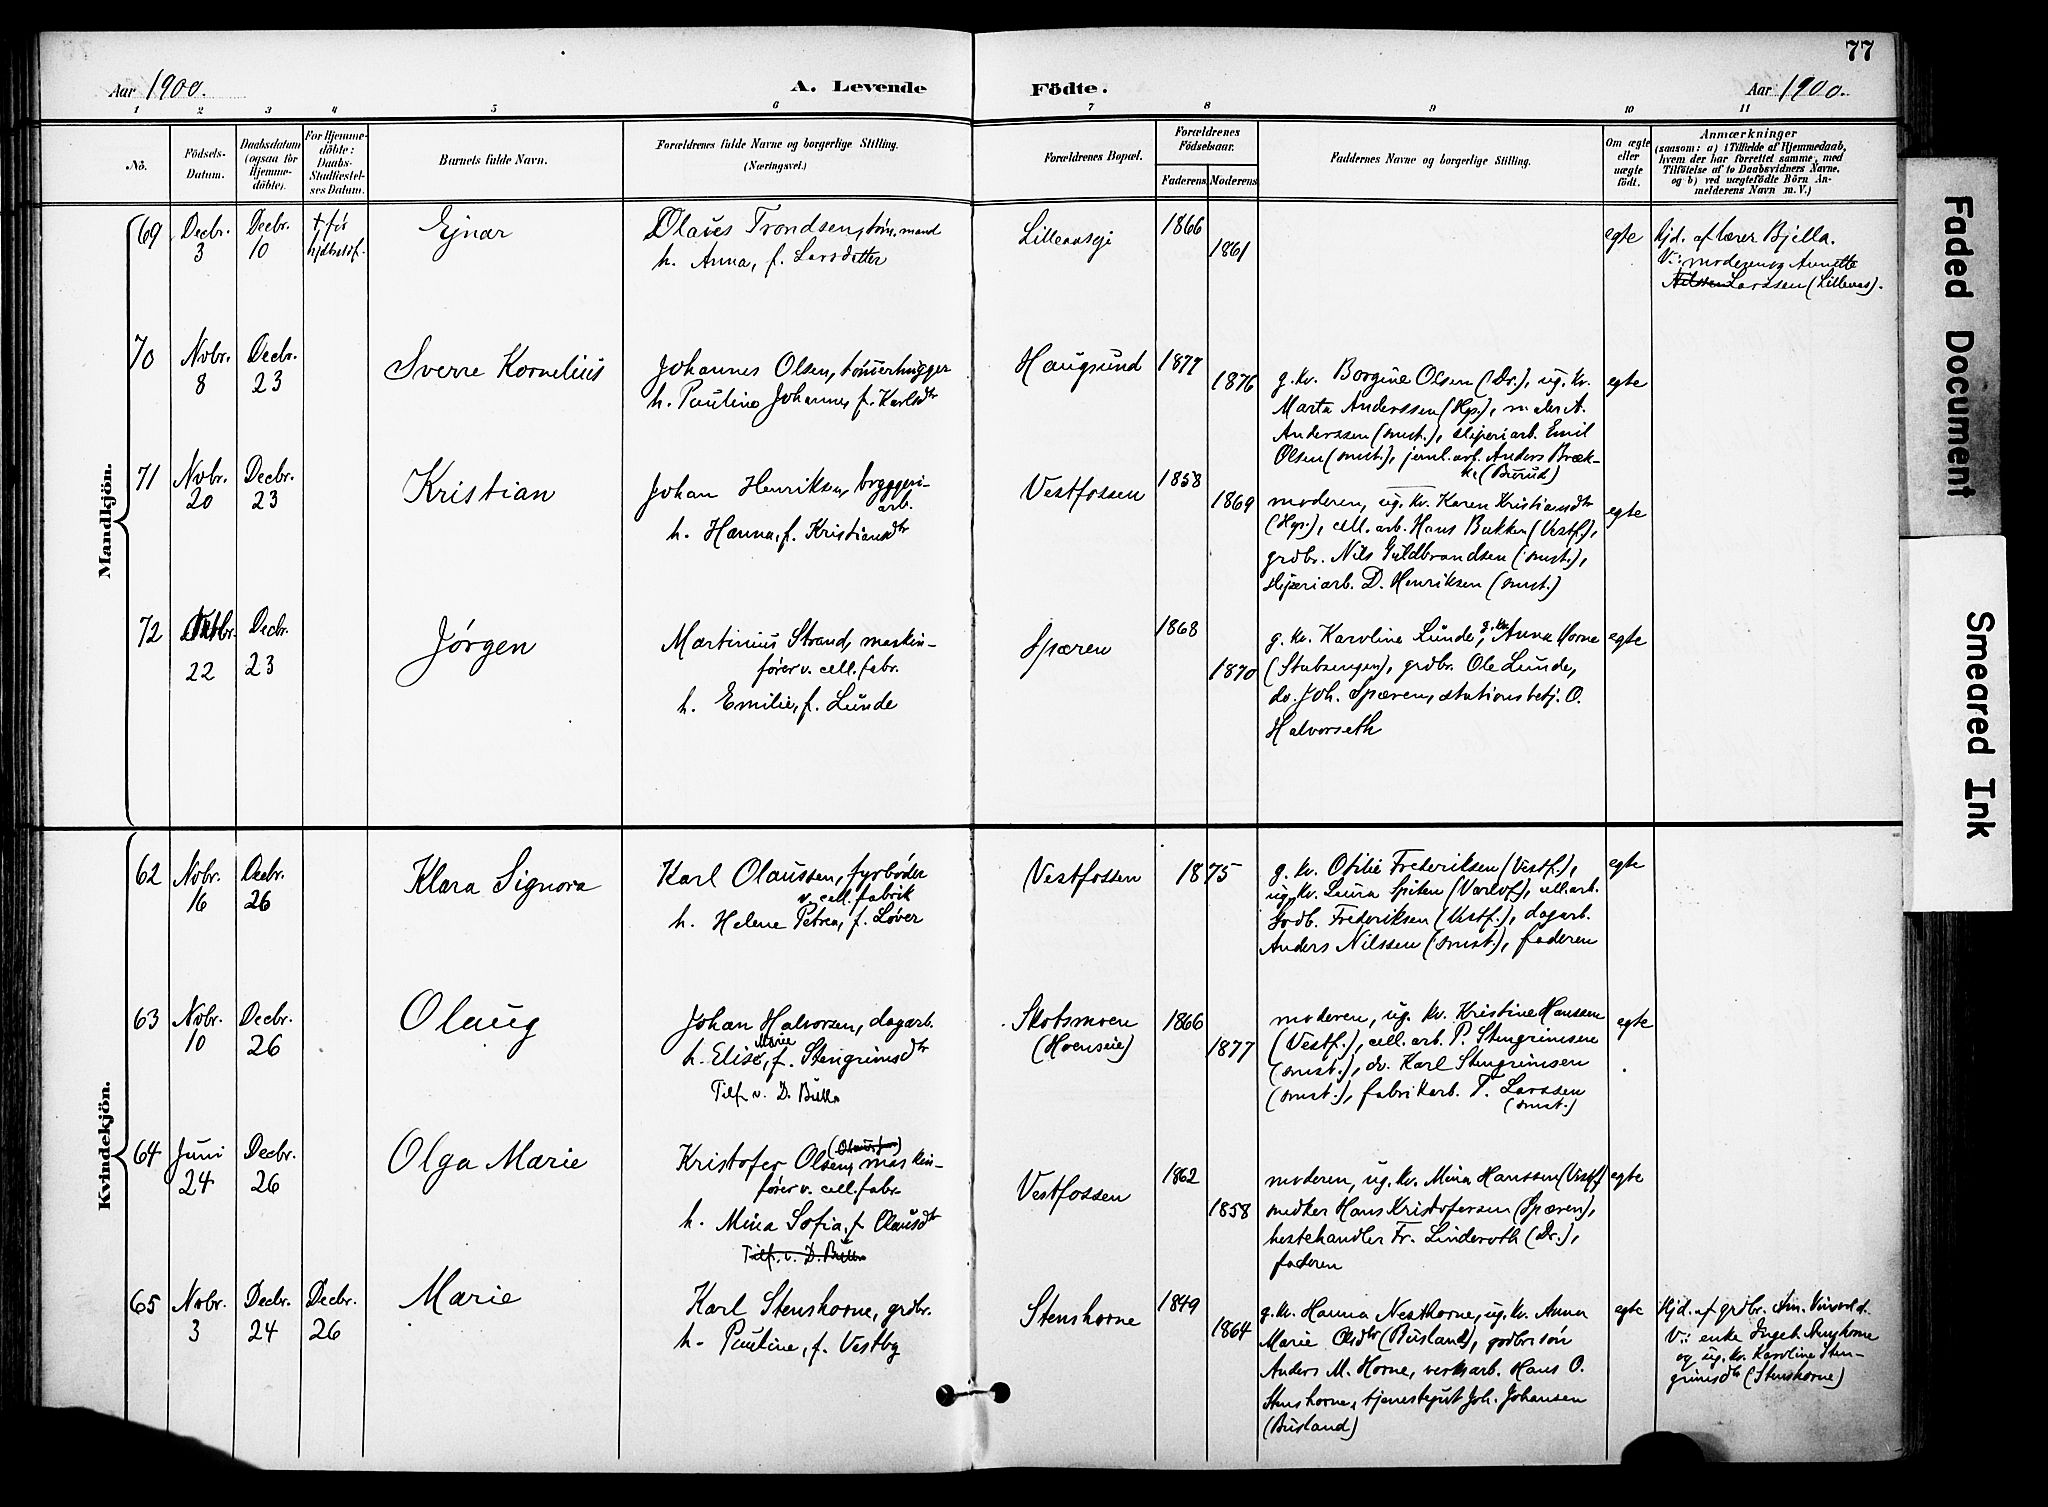 77
Aar 1900.
A. Levende Födte.
Aar 1900.
1 2 3 4 5 6 7 8 9 10 11
No.
Födsels-
Datum.
Daabsdatum
(ogsaa for
Hjemme-
döbte).
For Hjemme-
döbte:
Daabs-
Stadfæstel-
ses Datum.
Barnets fulde Navn.
Forældrenes fulde Navne og borgerlige Stilling.
(Næringsvei.)
Forældrenes Bopæl.
Forældrenes
Födselsaar.
Faderens. Moderens.
Faddernes Navne og borgerlige Stilling.
Om ægte
eller
uægte
födt.
Anmærkninger
(saasom: a) i Tilfælde af Hjemmedaab,
hvem der har forrettet samme, med
Tilföielse af to Daabsvidners Navne,
og b) ved uægtefödte Börn An-
melderens Navn m. V.)
Mandkjön.
69
Decbr.
3
Decbr.
10
† før
hjdbstsf.
Ejnar
Olaves Trondsen, tøm.mand
h. Anna, f. Larsdatter
Lilleaaseje
1866
1861
egte
Hjd. af lærer Bjella.
V.: moderen og Annette
Nilssen Larssen (Lilleaas).
70
Nvbr.
8
Decbr.
23
Sverre Kornelius
Johannes Olsen, tømmerhugger
h. Pauline Johanne, f. Karlsdtr
Haugsund
1877
1876
g. kv. Borgine Olsen (Dr.), ug. kv.
Marta Anderssen (Hgs.), maler A.
Anderssen (smst.), sliperiarb. Emil
Olsen (smst.), jernl. arb. Anders Bræk-
ke (Burud)
egte
71
Nvbr.
20
Decbr.
23
Kristian
Johan Henriksen, bryggeri-
arb.
h. Hanna, f. Kristiansdtr
Vestfossen
1858
1869
moderen, ug. kv. Karen Kristiansdtr
(Hgs.), cell. arb. Hans Bakken (Vestf.),
grdbr. Nils Guldbrandsen (smst.),
sliperiarb. D. Henriksen (smst.)
egte
72
22
Decbr.
23
Jørgen
Martinius Strand, maskin-
fører v. cell. fabr.
h. Emilie, f. Lunde
Spæren
1868
1870
g. kv. Karoline Lunde, g. kv. Anna Horne
(Stubsengen), grdbr. Ole Lunde,
do. Joh. Spæren, stationsbetj. O.
Halvorseth
egte
Kvindekjön.
62
Nvbr.
16
Decbr.
26
Klara Signora
Karl Olaussen, fyrbøder
v. cell. fabrik
h. Helene Petrea, f. Løver
Vestfossen
1875
g. kv. Otilie Frederiksen (Vestf.),
ug. kv. Laura Spiten (Varlof), cell. arb.
Gudb. Frederiksen (Vestf.), dagarb.
Anders Nilssen (smst.), faderen
egte
63
Nvbr.
10
Decbr.
26
Olaug
Johan Halvorsen, dagarb.
Marie
h. Elise, f. Stengrimsdtr
Tilf. v. D. Bull
Skotsmoen
(Hoenseie)
1866
1877
moderen, ug. kv. Kristine Hanssen
(Vestf.), cell. arb. P. Stengrimsen
(smst.), do. Karl Stengrimsen
(smst.), fabrikarb. T. Larssen
(smst.)
egte
64
Juni
24
Decbr.
26
Olga Marie
Kristofer Olsen, maskin-
fører v. cell. fabr.
h. Mina Sofia, f. Olausdtr
Tilf. v. D. Bull
Vestfossen
1862
1858
moderen, ug. kv. Mina Hanssen (Vestf.)
snedker Hans Kristofersen (Spæren),
hestehandler Fr. Linderoth (Dr.),
faderen
egte
65
Nvbr.
3
Decbr.
24
Decbr.
26
Marie
Karl Stenshorne, grdbr.
h. Pauline, f. Vestby
Stenshorne
1849
1864
g. kv. Hanna Nesthorne, ug. kv. Anna
Marie Olsdtr (Busland), grdbr.søn
Anders M. Horne, verksarb. Hans O.
Stenshorne, tjenestegut Joh. Johansen
(Busland)
egte
Hjd. af grdbr.
V.: enke Ingeb.
og ug. kv. Karoline Sten-
grimsdtr (Stenshorne)
Faded Document
Smeared Ink